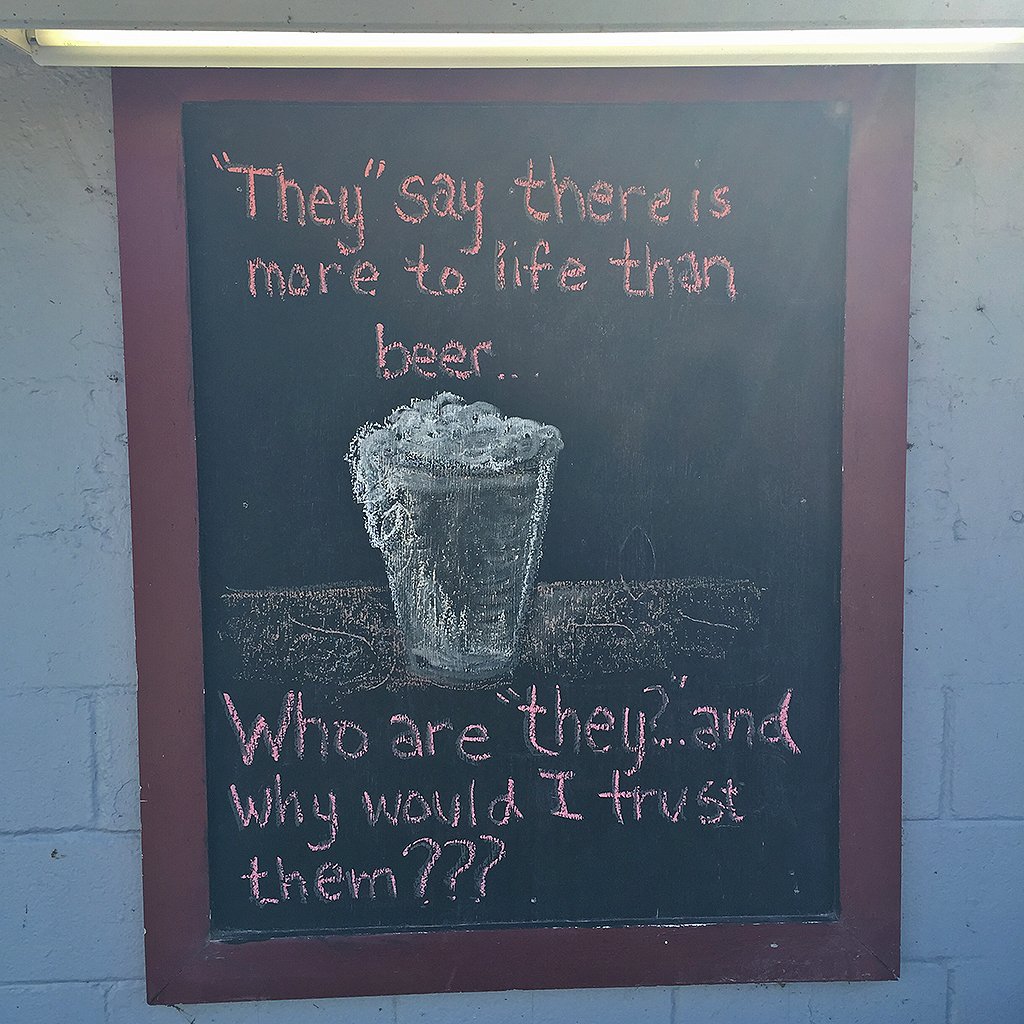 "They" say there is
more to life than
beer...
Who are "they?"...and
why would I trust
them???